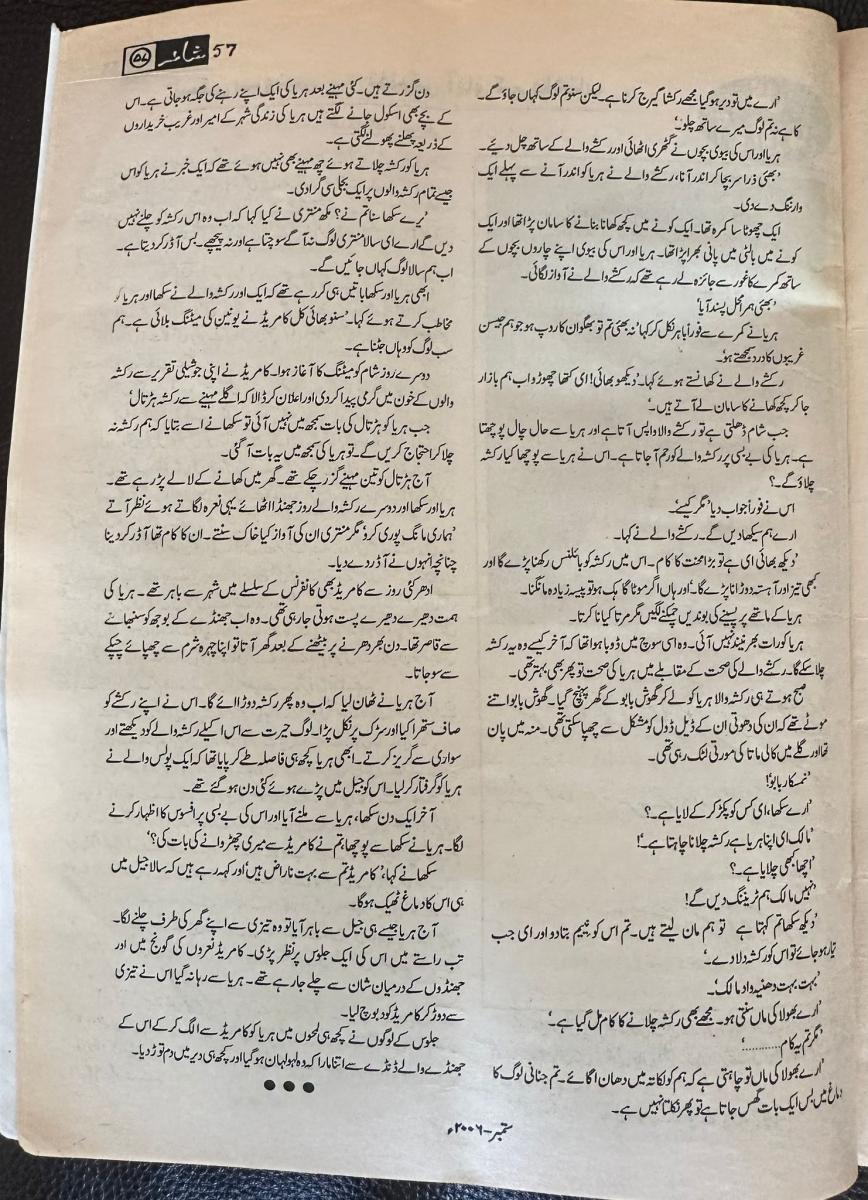 57 شاعر ۵۷
’ارے میں تو دیر ہو گیا مجھے رکشا گیرج کرنا ہے۔ لیکن سنو تم لوگ کہاں جاؤ گے۔
کاہے نہ تم لوگ میرے ساتھ چلو۔‘
ہریا اور اس کی بیوی بچوں نے گٹھری اٹھائی اور رکشے والے کے ساتھ چل دیئے۔
’بھئی ذرا سر بچا کر اندر آنا، رکشے والے نے ہریا کو اندر آنے سے پہلے ایک
وارننگ دے دی۔
ایک چھوٹا سا کمرہ تھا۔ ایک کونے میں کچھ کھانا بنانے کا سامان پڑا تھا اور ایک
کونے میں بالٹی میں پانی بھرا پڑا تھا۔ ہریا اور اس کی بیوی اپنے چاروں بچوں کے
ساتھ کمرے کا غور سے جائزہ لے رہے تھے کہ رکشے والے نے آواز لگائی۔
’بھئی ہمرا محل پسند آیا‘
ہریا نے کمرے سے فوراً باہر نکل کر کہا ’نہ بھئی تم تو بھگوان کا روپ ہو جو ہم جیسن
غریبوں کا درد سمجھتے ہو‘۔
رکشے والے نے کھانستے ہوئے کہا۔ ’دیکھو بھائی! ای کتھا چھوڑو اب ہم بازار
جا کر کچھ کھانے کا سامان لے آتے ہیں۔‘
جب شام ڈھلتی ہے تو رکشے والا واپس آتا ہے اور ہریا سے حال چال پوچھتا
ہے۔ ہریا کی بے بسی پر رکشہ والے کو رحم آ جاتا ہے۔ اس نے ہریا سے پوچھا کیا رکشہ
چلاؤ گے۔؟
اس نے فوراً جواب دیا ’مگر کیسے‘۔
ارے ہم سیکھا دیں گے۔ رکشے والے نے کہا۔
’دیکھ بھائی ای ہے تو بڑا محنت کا کام۔ اس میں رکشہ کو بائلنس رکھنا پڑے گا اور
کبھی تیز اور آہستہ دوڑانا پڑے گا۔‘ اور ہاں اگر موٹا گاہک ہو تو پیسہ زیادہ مانگنا۔
ہریا کے ماتھے پر پسینے کی بوندیں چمکنے لگیں مگر مرتا کیا نا کرتا۔
ہریا کو رات بھر نیند نہیں آئی۔ وہ اسی سوچ میں ڈوبا ہوا تھا کہ آخر کیسے وہ یہ رکشہ
چلا سکے گا۔ رکشے والے کی صحت کے مقابلے میں ہریا کی صحت تو پھر بھی بہتر تھی۔
صبح ہوتے ہی رکشہ والا ہریا کو لے کر گھوش بابو کے گھر پہنچ گیا۔ گھوش بابو اتنے
موٹے تھے کہ ان کی دھوتی ان کے ڈیل ڈول کو مشکل سے چھپا سکتی تھی۔ منہ میں پان
تھا اور گلے میں کالی ماتا کی مورتی لٹک رہی تھی۔
’نمسکار بابو‘!
’ارے سکھا، ای کس کو پکڑ کر کے لایا ہے۔؟
’مالک ای اپنا ہریا ہے رکشہ چلانا چاہتا ہے۔‘!
’اچھا کبھی چلایا ہے۔؟
’نہیں مالک ہم ٹریننگ دیں گے!
’دیکھ سکھا تم کہتا ہے تو ہم مان لیتے ہیں۔ تم اس کو نییم بتا دو اور ای جب
تیار ہو جائے تو اس کو رکشہ دلا دے۔‘
’بہت بہت دھنیہ واد مالک‘۔
’ارے بھولا کی ماں سنتی ہو۔ مجھے بھی رکشہ چلانے کا کام مل گیا ہے۔‘
’مگر تم یہ کام ............‘
’ارے بھولا کی ماں تو چاہتی ہے کہ ہم کو لکاتہ میں دھان اگائے۔ تم جنانی لوگ کا
دماغ میں بس ایک بات گھس جاتا ہے تو پھر نکلتا نہیں ہے۔
دن گزرتے ہیں۔ کئی مہینے بعد ہریا کی ایک اپنے رہنے کی جگہ ہو جاتی ہے۔ اس
کے بچے بھی اسکول جانے لگتے ہیں ہریا کی زندگی شہر کے امیر اور غریب خریداروں
کے ذریعہ پھلنے پھولنے لگتی ہے۔
ہریا کو رکشہ چلاتے ہوئے چھ مہینے بھی نہیں ہوئے تھے کہ ایک خبر نے ہریا کو اس
جیسے تمام رکشہ والوں پر ایک بجلی سی گرا دی۔
’برے سکھا سنا تم نے؟ مکھ منتری نے کیا کہا کہ اب وہ اس رکشہ کو چلنے نہیں
دیں گے ارے ای سالا منتری لوگ نہ آگے سوچتا ہے اور نہ پیچھے۔ بس آڈر کر دیتا ہے۔
اب ہم سالا لوگ کہاں جائیں گے۔
ابھی ہریا اور سکھا باتیں ہی کر رہے تھے کہ ایک اور رکشہ والے نے سکھا اور ہریا کو
مخاطب کرتے ہوئے کہا۔ ’سنو بھائی کل کامریڈ نے یونین کی میٹنگ بلائی ہے۔ ہم
سب لوگ کو وہاں جٹنا ہے۔
دوسرے روز شام کو میٹنگ کا آغاز ہوا۔ کامریڈ نے اپنی جوشیلی تقریر سے رکشہ
والوں کے خون میں گرمی پیدا کر دی اور اعلان کر ڈالا کہ اگلے مہینے سے رکشہ ہڑتال‘
جب ہریا کو ہڑتال کی بات سمجھ میں نہیں آئی تو سکھا نے اسے بتایا کہ ہم رکشہ نہ
چلا کر احتجاج کریں گے۔ تو ہریا کی سمجھ میں یہ بات آ گئی۔
آج ہڑتال کو تین مہینے گزر چکے تھے۔ گھر میں کھانے کے لالے پڑ رہے تھے۔
ہریا اور سکھا اور دوسرے رکشہ والے روز جھنڈا اٹھائے یہی نعرہ لگاتے ہوئے نظر آتے
’ہماری مانگ پوری کرو‘ مگر منتری ان کی آواز کیا خاک سنتے۔ ان کا کام تھا آڈر کر دینا
چنانچہ انہوں نے آڈر دے دیا۔
ادھر کئی روز سے کامریڈ بھی کانفرنس کے سلسلے میں شہر سے باہر تھے۔ ہریا کی
ہمت دھیرے دھیرے پست ہوتی جا رہی تھی۔ وہ اب جھنڈے کے بوجھ کو سنبھالنے
سے قاصر تھا۔ دن بھر دھرنے پر بیٹھنے کے بعد گھر آتا تو اپنا چہرہ شرم سے چھپائے چپکے
سے سو جاتا۔
آج ہریا نے ٹھان لیا کہ اب وہ پھر رکشہ دوڑائے گا۔ اس نے اپنے رکشے کو
صاف ستھرا کیا اور سڑک پر نکل پڑا۔ لوگ حیرت سے اس اکیلے رکشہ والے کو دیکھتے اور
سواری سے گریز کرتے۔ ابھی ہریا کچھ ہی فاصلہ طے کر پایا تھا کہ ایک پولس والے نے
ہریا کو گرفتار کر لیا۔ اس کو جیل میں پڑے ہوئے کئی دن ہو گئے تھے۔
آخر ایک دن سکھا، ہریا سے ملنے آیا اور اس کی بے بسی پر افسوس کا اظہار کرنے
لگا۔ ہریا نے سکھا سے پوچھا ’ہتم نے کامریڈ سے میری چھڑوانے کی بات کی؟‘
سکھا نے کہا، ’کامریڈ تم سے بہت ناراض ہیں‘ اور کہہ رہے ہیں کہ سالا جیل میں
ہی اس کا دماغ ٹھیک ہوگا۔
آج ہریا جیسے ہی جیل سے باہر آیا تو وہ تیزی سے اپنے گھر کی طرف چلنے لگا۔
تب راستے میں اس کی ایک جلوس پر نظر پڑی۔ کامریڈ نعروں کی گونج میں اور
جھنڈوں کے درمیان شان سے چلے جا رہے تھے۔ ہریا سے رہا نہ گیا اس نے تیزی
سے دوڑ کر کامریڈ کو دبوچ لیا۔
جلوس کے لوگوں نے کچھ ہی لمحوں میں ہریا کو کامریڈ سے الگ کر کے اس کے
جھنڈے والے ڈنڈے سے اتنا مارا کہ وہ لہولہان ہو گیا اور کچھ ہی دیر میں دم توڑ دیا۔
●●●
ستمبر-۲۰۰۶ء